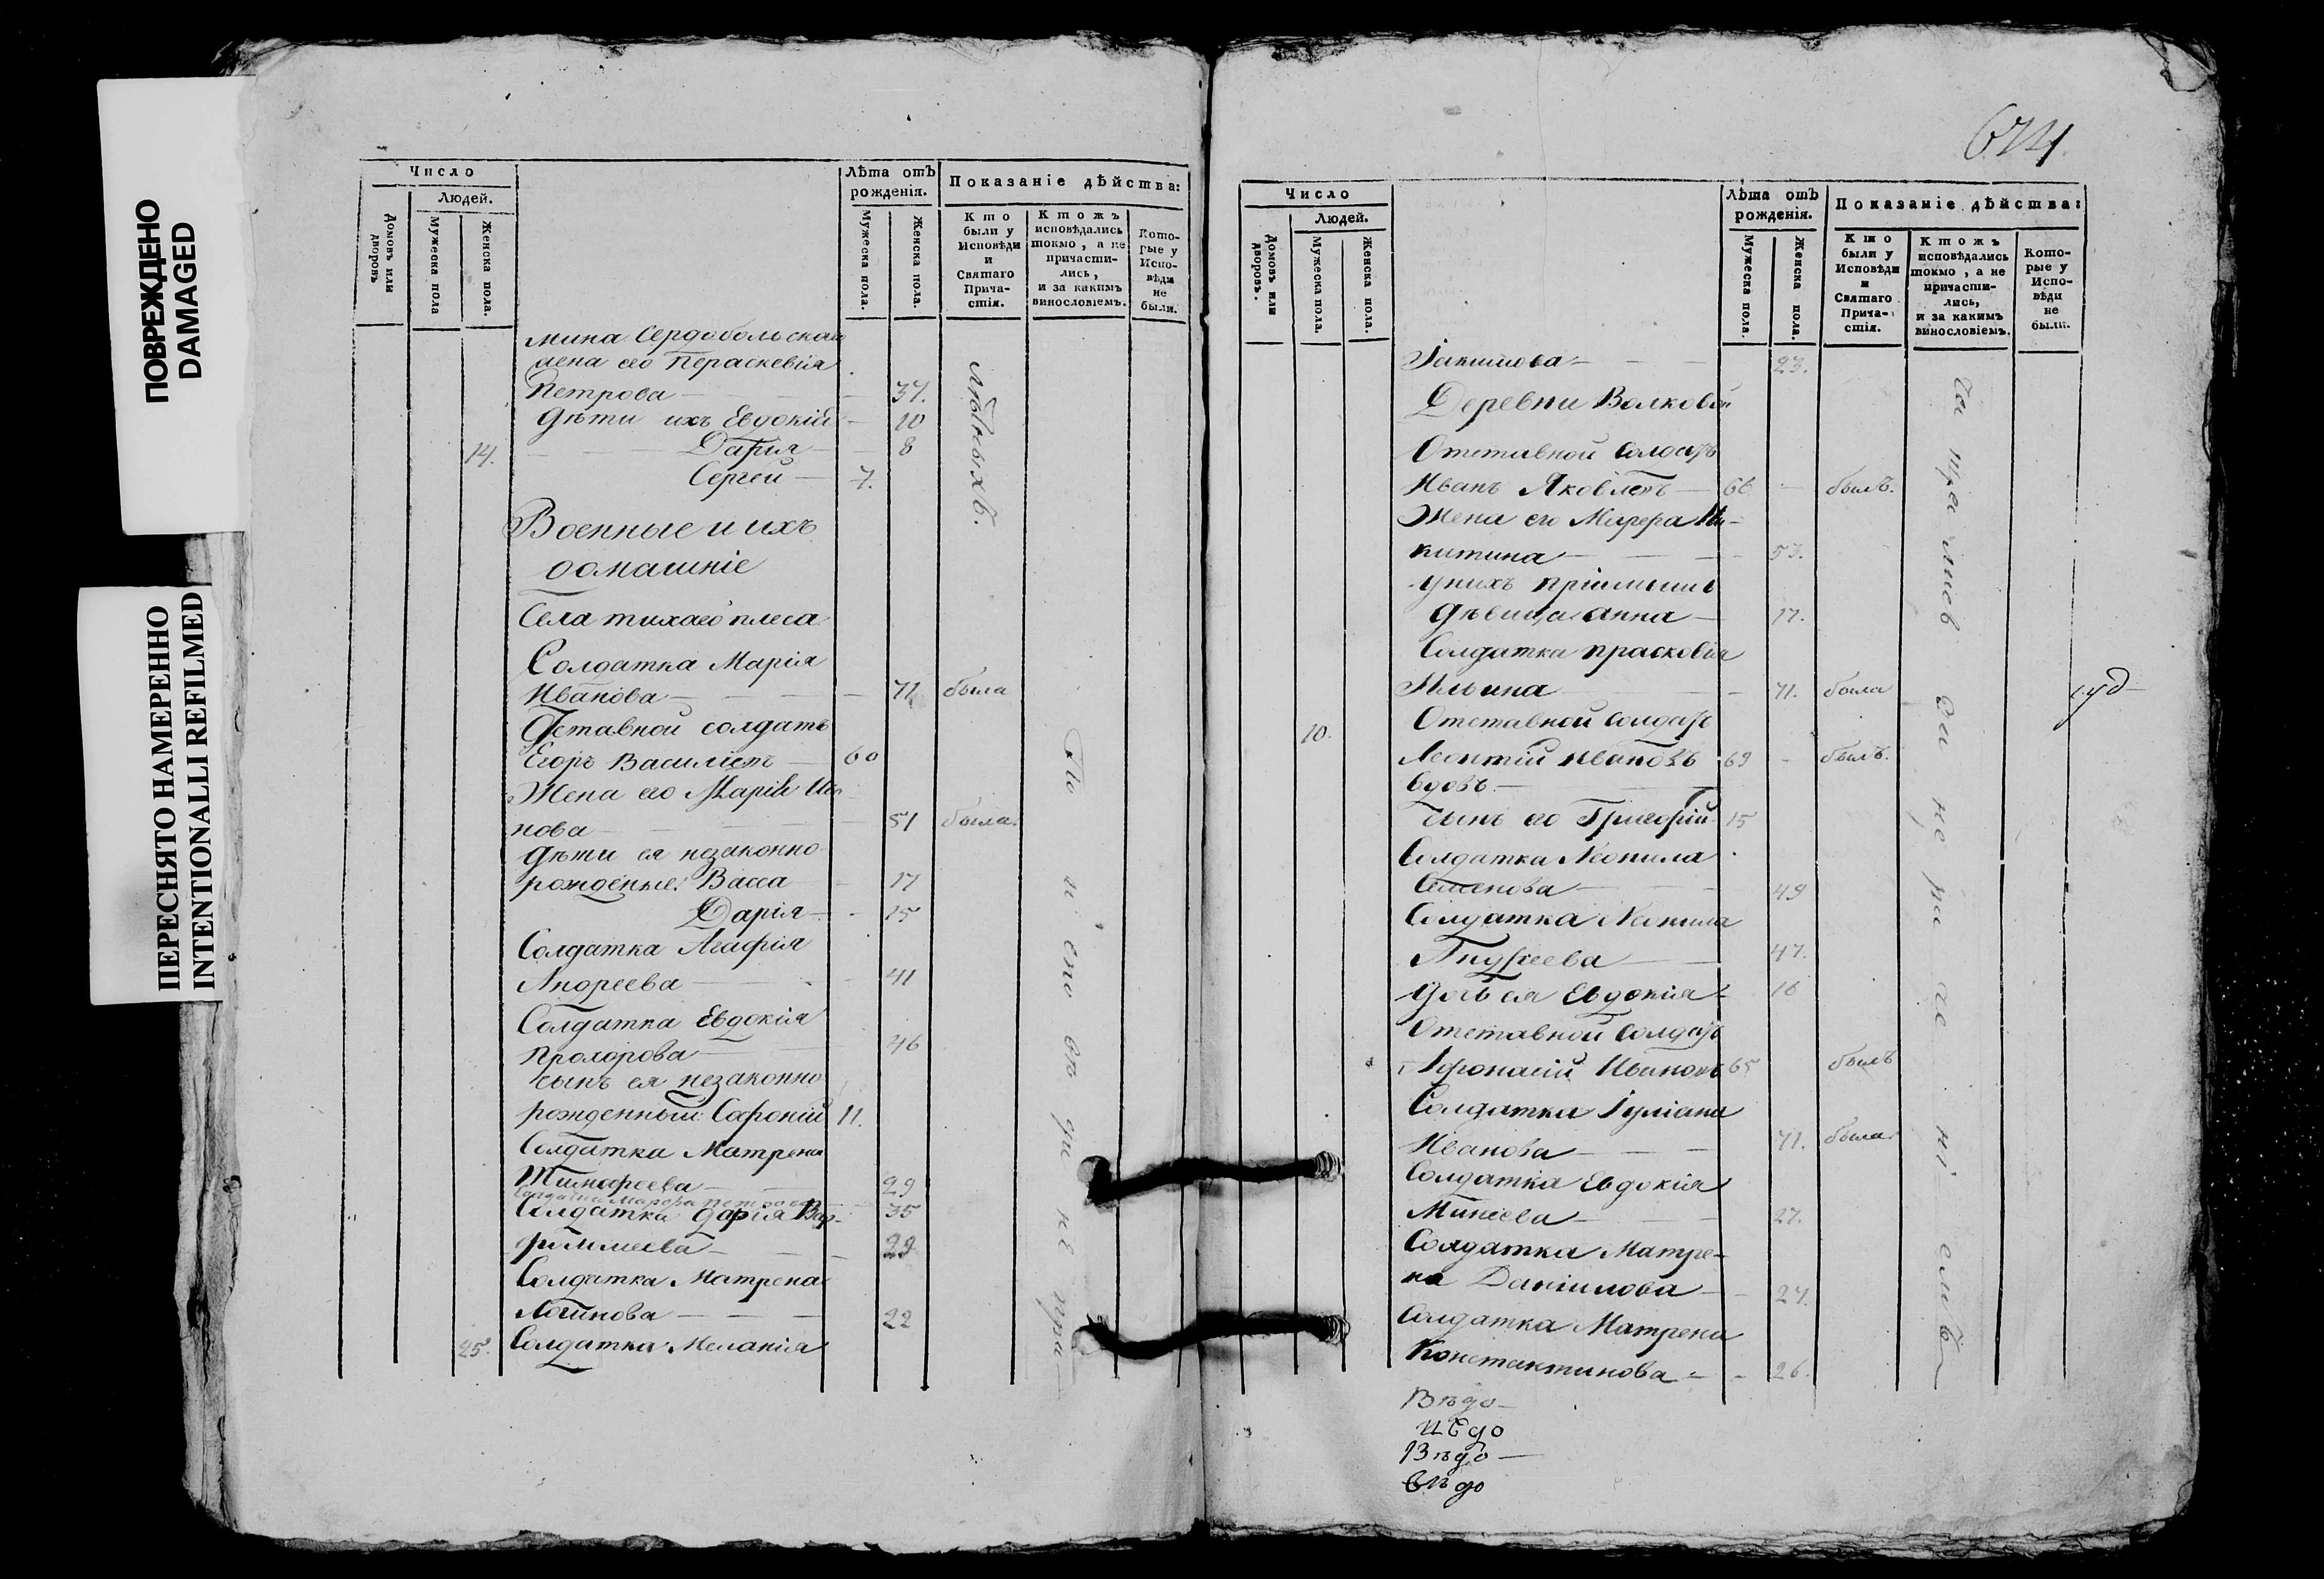 ПОВРЕЖДЕНО
DAMAGED
ПЕРЕСНЯТО НАМЕРЕННО
INTENTIONALLI REFILMED
Число
Людей.
Домовъ или дворовъ
Мужеска пола
Женска пола.
Лѣта отъ рожденія.
Мужеска пола.
Женска пола.
Показаніе дѣйства:
Кто были у Исповѣди и Святаго Прича-стія.
Ктожъ исповѣдались токмо, а не причасти-лись, и за какимъ винословіемъ.
Кото-рые у Испо-вѣди не были.
мина Сердобольскаго
жена его Пераскевія
Петрова 37.
дѣти ихъ Евдокія 10
14. Дарія 8
Сергей 7.
Военные и ихъ
домашніе
Села тихаго плеса
Солдатка Марія
Иванова 71 была
Отставной солдатъ
Егоръ Василіевъ 60
Жена его Марія Ива
нова 51 была
дѣти ея незаконно
рожденые: Васса 17
Дарія 15
Солдатка Агафія
Андреева 41
Солдатка Евдокія
Прохорова 46
сынъ ея незаконно
рожденный Софоній 11.
Солдатка Матрена
Тимофеева 29
Солдатка Марфа Петрова 35
Солдатка Дарія Вар-
фоломеева 29
Солдатка Матрена
Логинова 22
25. Солдатка Меланія
По
674
Число
Людей.
Домовъ или дворовъ.
Мужеска пола.
Женска пола.
Лѣта отъ рожденія.
Мужеска пола
Женска пола.
Показаніе дѣйства:
Кто были у Исповѣди и Святаго Прича-стія.
Ктожъ исповѣдались токмо, а не причасти-лись, и за какимъ винословіемъ.
Кото-рые у Испо-вѣди не были.
Іакимова 23.
Деревни Волковой
Отставной Солдатъ
Иванъ Яковлевъ 66 былъ.
Жена его Марфа Ни-
китина 53.
у нихъ пріемышъ
дѣвица Анна 17.
Солдатка Прасковія
Ильина 71. была
10. Отставной Солдатъ
Леонтій Ивановъ 69 былъ.
вдовъ
Сынъ его Григорій 15
Солдатка Неонила
Семенова 49
Солдатка Неонила
Андреева 47.
Дочь ея Евдокія 16
Отставной Солдатъ
Афонасій Ивановъ 65 былъ
Солдатка Іуліана
Иванова 71. была
Солдатка Евдокія
Минеева 27.
Солдатка Матре-
на Даниилова 27.
Солдатка Матрена
Константинова 26.